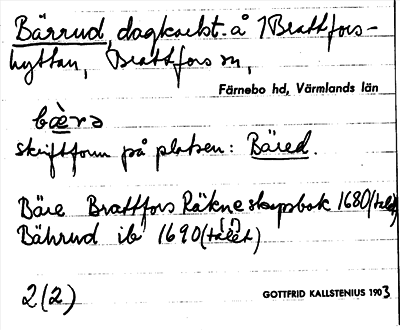 Bärrud, dagkarlst. å 1 Brattfors-
hyttan, Brattfors sn,
Färnebo hd, Värmlands län
bæ̀rə
skriftform på platsen: Bäred.
Bäre Brattfors Räkneskapsbok 1680 (talet)
Bährud ib 1690 (talet)
2(2)
GOTTFRID KALLSTENIUS 1903